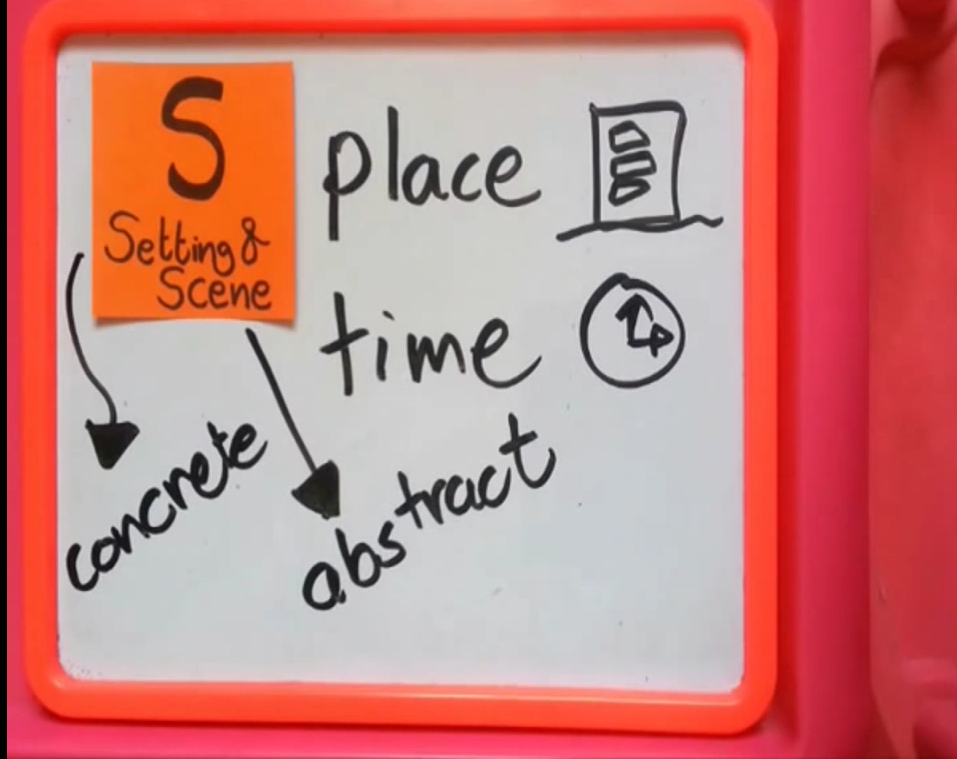 S
Setting &
Scene
place
time
concrete
abstract